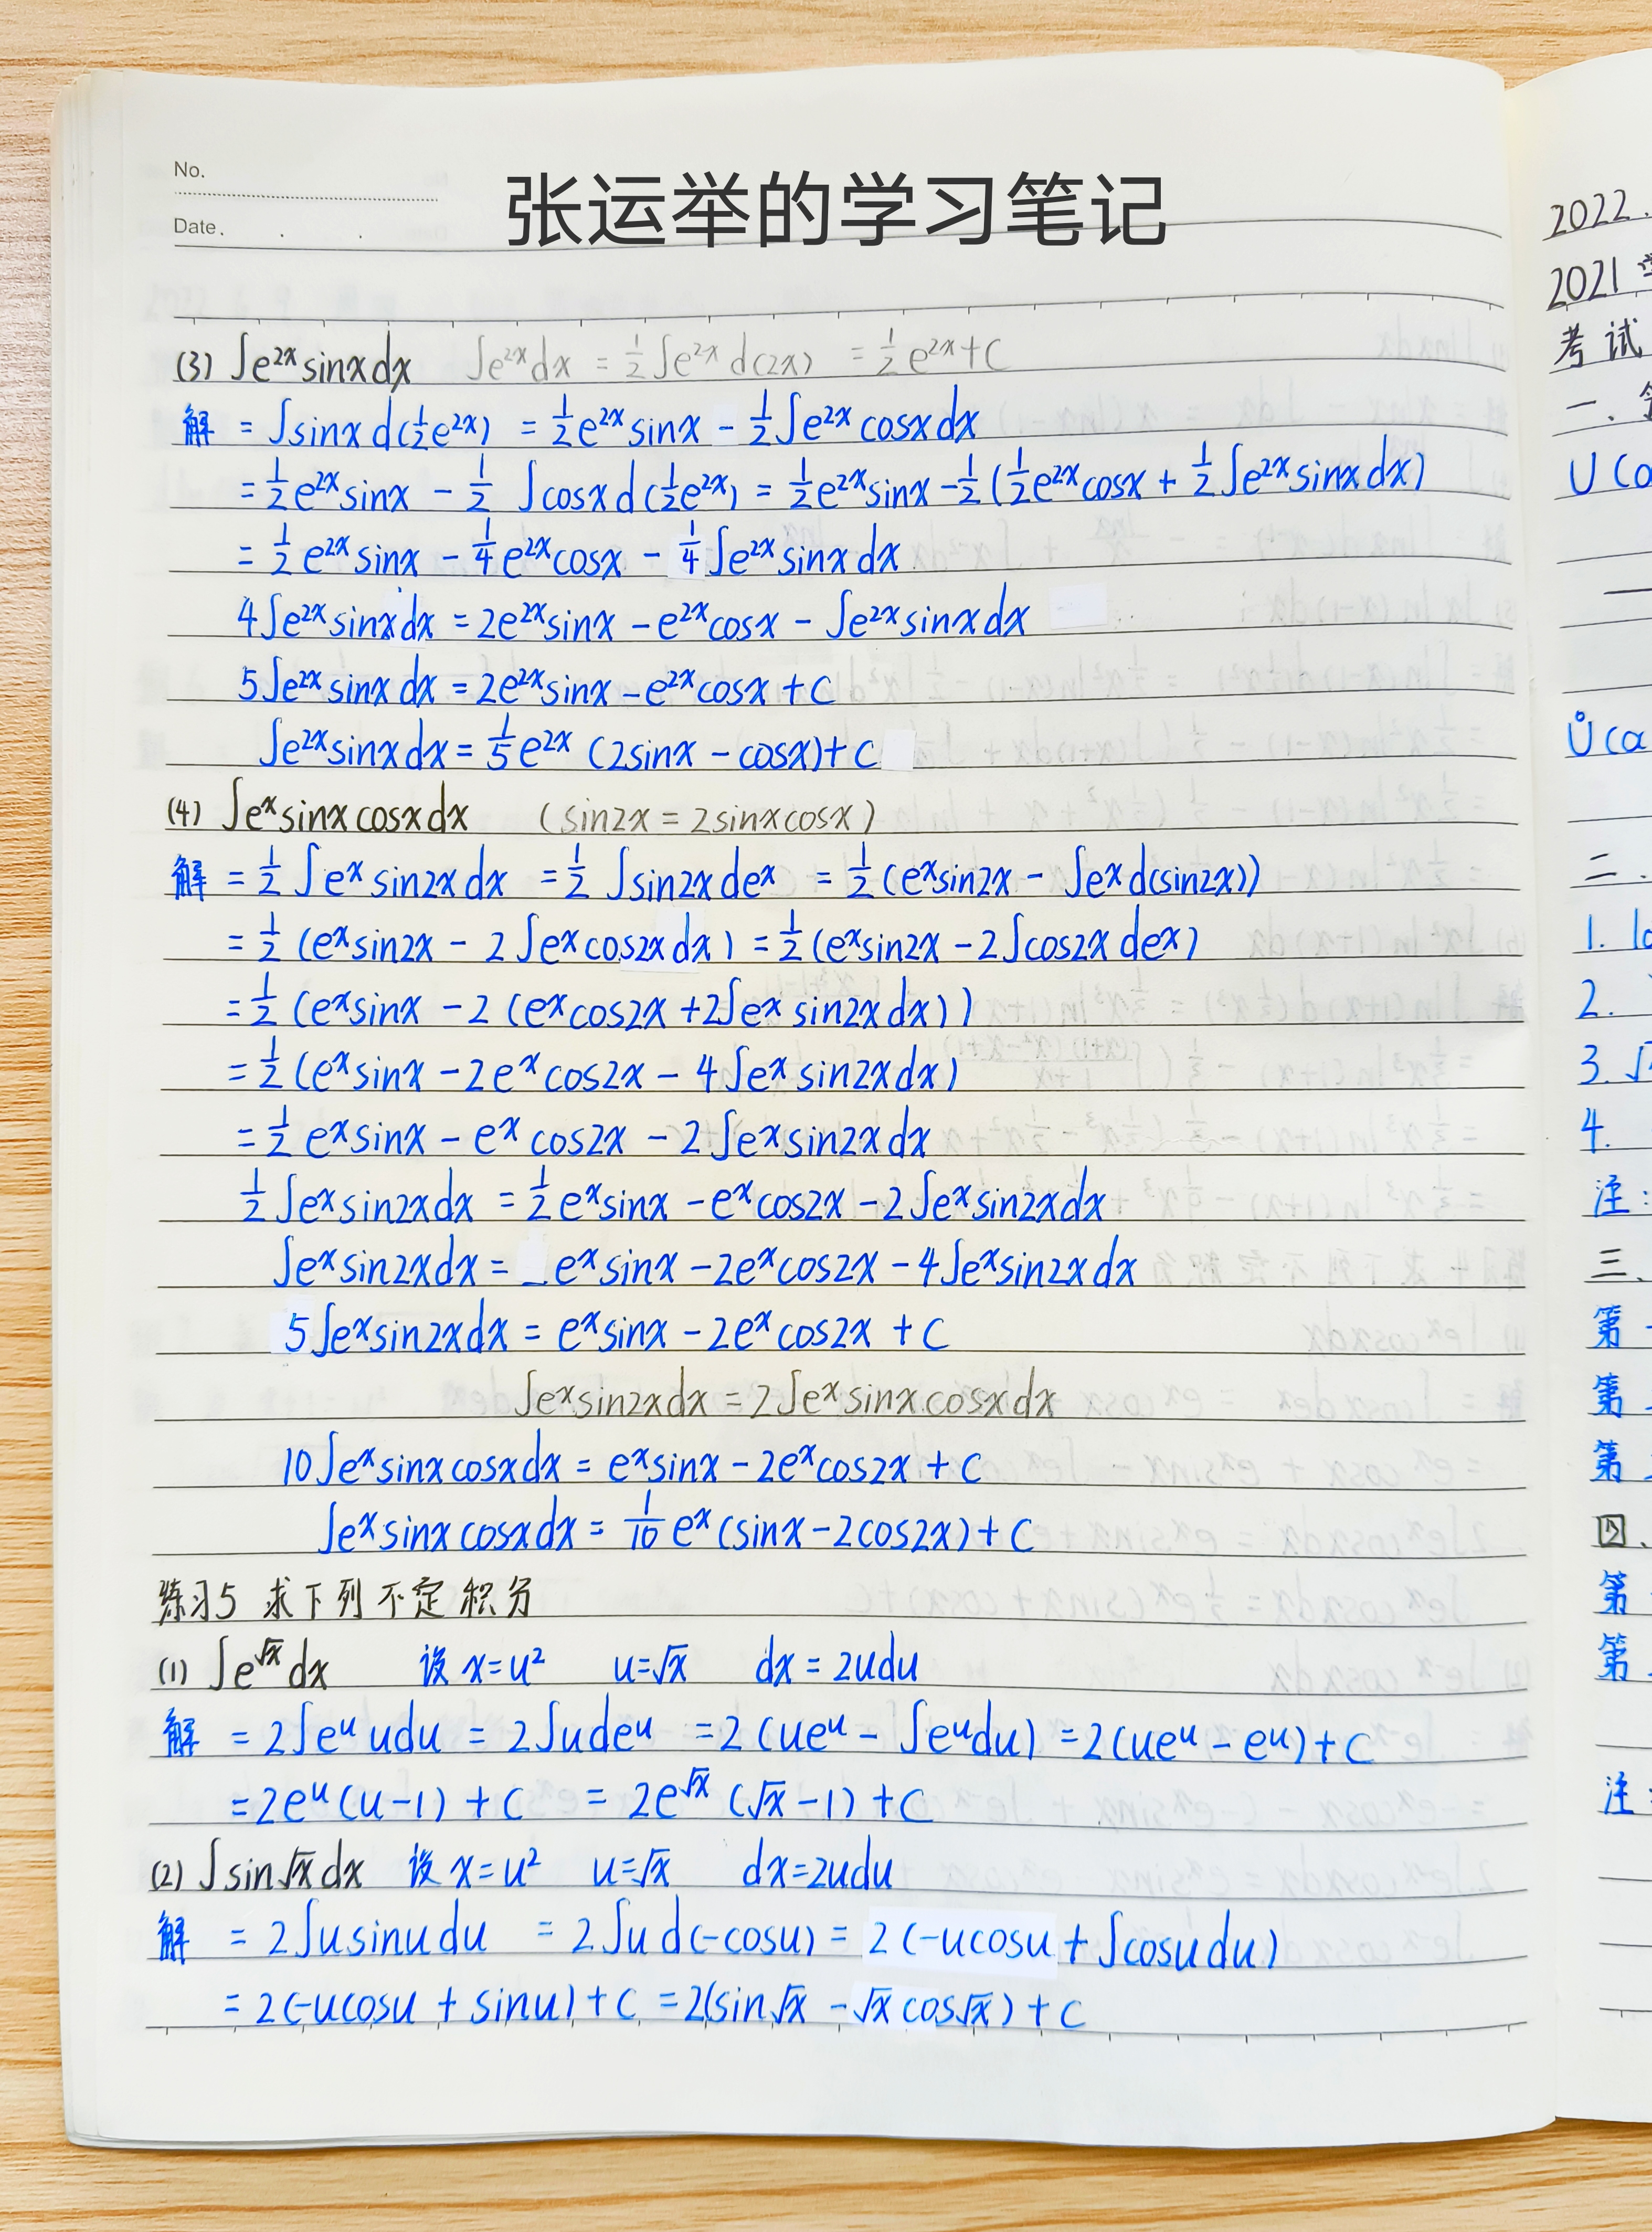 No.
Date.
张运举的学习笔记
(3) ∫e²ˣsinxdx ∫e²ˣdx = ½∫e²ˣd(2x) = ½e²ˣ+C
解 = ∫sinxd(½e²ˣ) = ½e²ˣsinx - ½∫e²ˣcosxdx
= ½e²ˣsinx - ½ ∫cosxd(½e²ˣ) = ½e²ˣsinx - ½(½e²ˣcosx + ½∫e²ˣsinxdx)
= ½e²ˣsinx - ¼e²ˣcosx - ¼∫e²ˣsinxdx
4∫e²ˣsinxdx = 2e²ˣsinx - e²ˣcosx - ∫e²ˣsinxdx
5∫e²ˣsinxdx = 2e²ˣsinx - e²ˣcosx + C
∫e²ˣsinxdx = ⅕e²ˣ(2sinx - cosx) + C
(4) ∫eˣsinxcosxdx (sin2x = 2sinxcosx)
解 = ½∫eˣsin2xdx = ½∫sin2xdeˣ = ½(eˣsin2x - ∫eˣd(sin2x))
= ½(eˣsin2x - 2∫eˣcos2xdx) = ½(eˣsin2x - 2∫cos2xdeˣ)
= ½(eˣsinx - 2(eˣcos2x + 2∫eˣsin2xdx))
= ½(eˣsinx - 2eˣcos2x - 4∫eˣsin2xdx)
= ½eˣsinx - eˣcos2x - 2∫eˣsin2xdx
½∫eˣsin2xdx = ½eˣsinx - eˣcos2x - 2∫eˣsin2xdx
∫eˣsin2xdx = eˣsinx - 2eˣcos2x - 4∫eˣsin2xdx
5∫eˣsin2xdx = eˣsinx - 2eˣcos2x + C
∫eˣsin2xdx = 2∫eˣsinxcosxdx
10∫eˣsinxcosxdx = eˣsinx - 2eˣcos2x + C
∫eˣsinxcosxdx = 1/10 eˣ(sinx - 2cos2x) + C
练习5 求下列不定积分
(1) ∫e^√x dx 设x=u² u=√x dx=2udu
解 = 2∫eᵘudu = 2∫udeᵘ = 2(ueᵘ - ∫eᵘdu) = 2(ueᵘ - eᵘ) + C
= 2eᵘ(u-1) + C = 2e^√x(√x-1) + C
(2) ∫sin√x dx 设x=u² u=√x dx=2udu
解 = 2∫usinudu = 2∫ud(-cosu) = 2(-ucosu + ∫cosudu)
= 2(-ucosu + sinu) + C = 2(sin√x - √xcos√x) + C
2022.
2021
考试
一、
U(a
Ů(a
二、
1.
2.
3.
4.
注:
三、
第
第
第
四、
第
第
注: